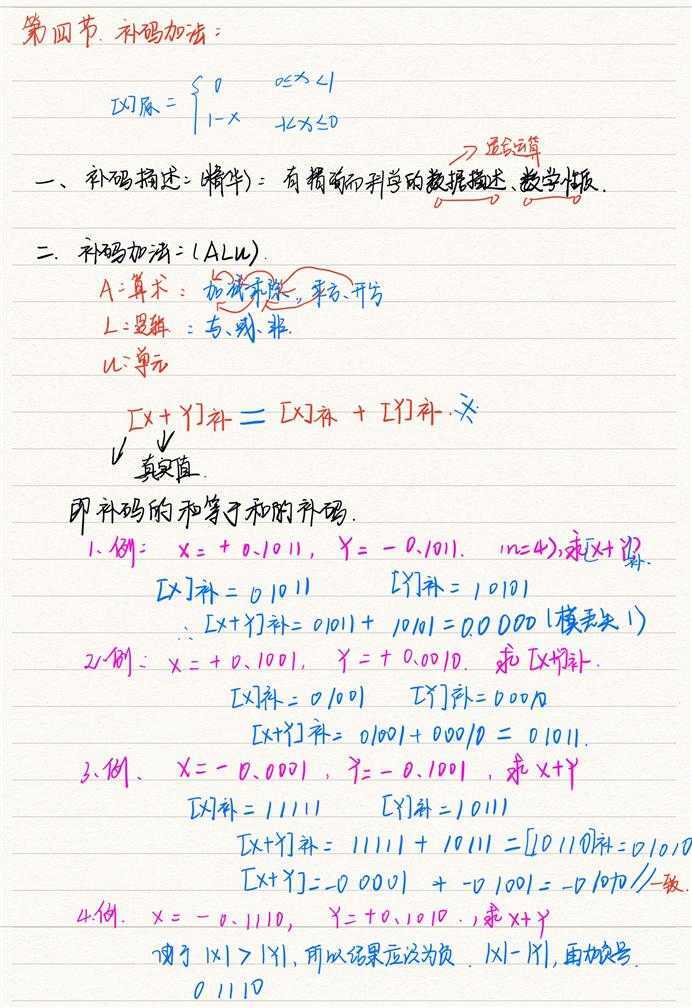 第四节. 补码加法:
[X]原 = { 0  0≤x<1
1-x  -1<x≤0
→ 适合运算
一、补码描述:(精华): 有精简而科学的数据描述、数学性质.
二. 补码加法:(ALU).
A:算术: 加减乘除,, 平方、开方
L:逻辑: 与、或、非.
U:单元
[X+Y]补 = [X]补 + [Y]补.※
真实值.
即补码的和等于和的补码.
1、例: X=+0.1011, Y=-0.1011. (n=4),求[X+Y]补.
[X]补=01011 [Y]补=10101
∴[X+Y]补=01011+10101=00000(模丢失1)
2、例: X=+0.1001, Y=+0.0010. 求[X+Y]补.
[X]补=01001 [Y]补=00010
[X+Y]补=01001+00010=01011.
3、例、 X=-0.0001, Y=-0.1001, 求X+Y
[X]补=11111 [Y]补=10111
[X+Y]补=11111+10111=[10110]补=01010
[X+Y]=-00001 + -01001=-01010//一致.
4.例. X=-0.1110, Y=+0.1010.,求X+Y
由于|X|>|Y|,所以结果应该为负.|X|-|Y|,再加负号.
01110